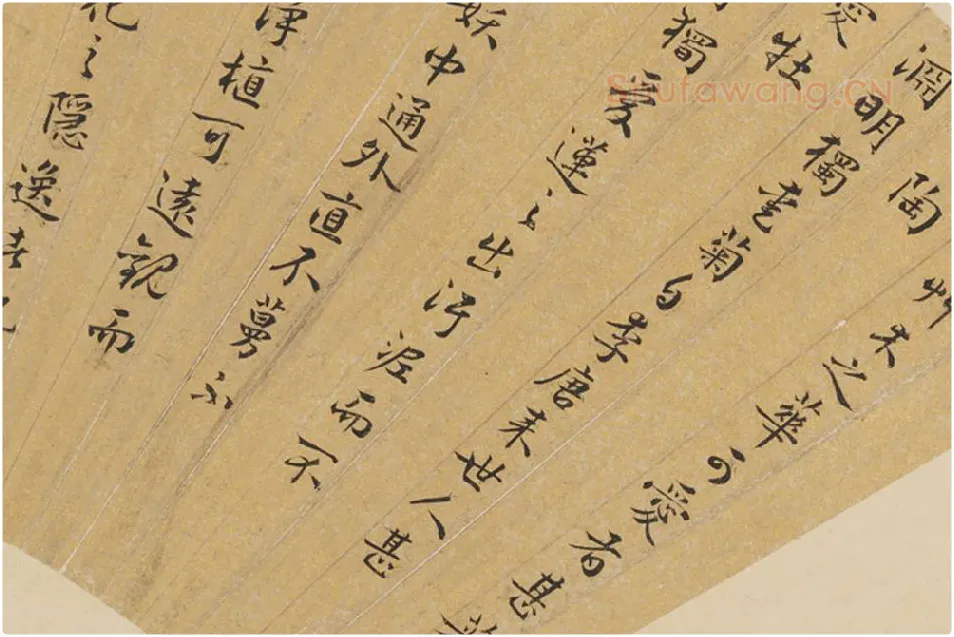 艸木之華可愛者甚蕃
陶
淵明獨愛菊自李唐来世人甚
愛牡
獨愛蓮之出汙泥而不
妖中通外直不蔓不
淨植可遠觀而
之隱逸者